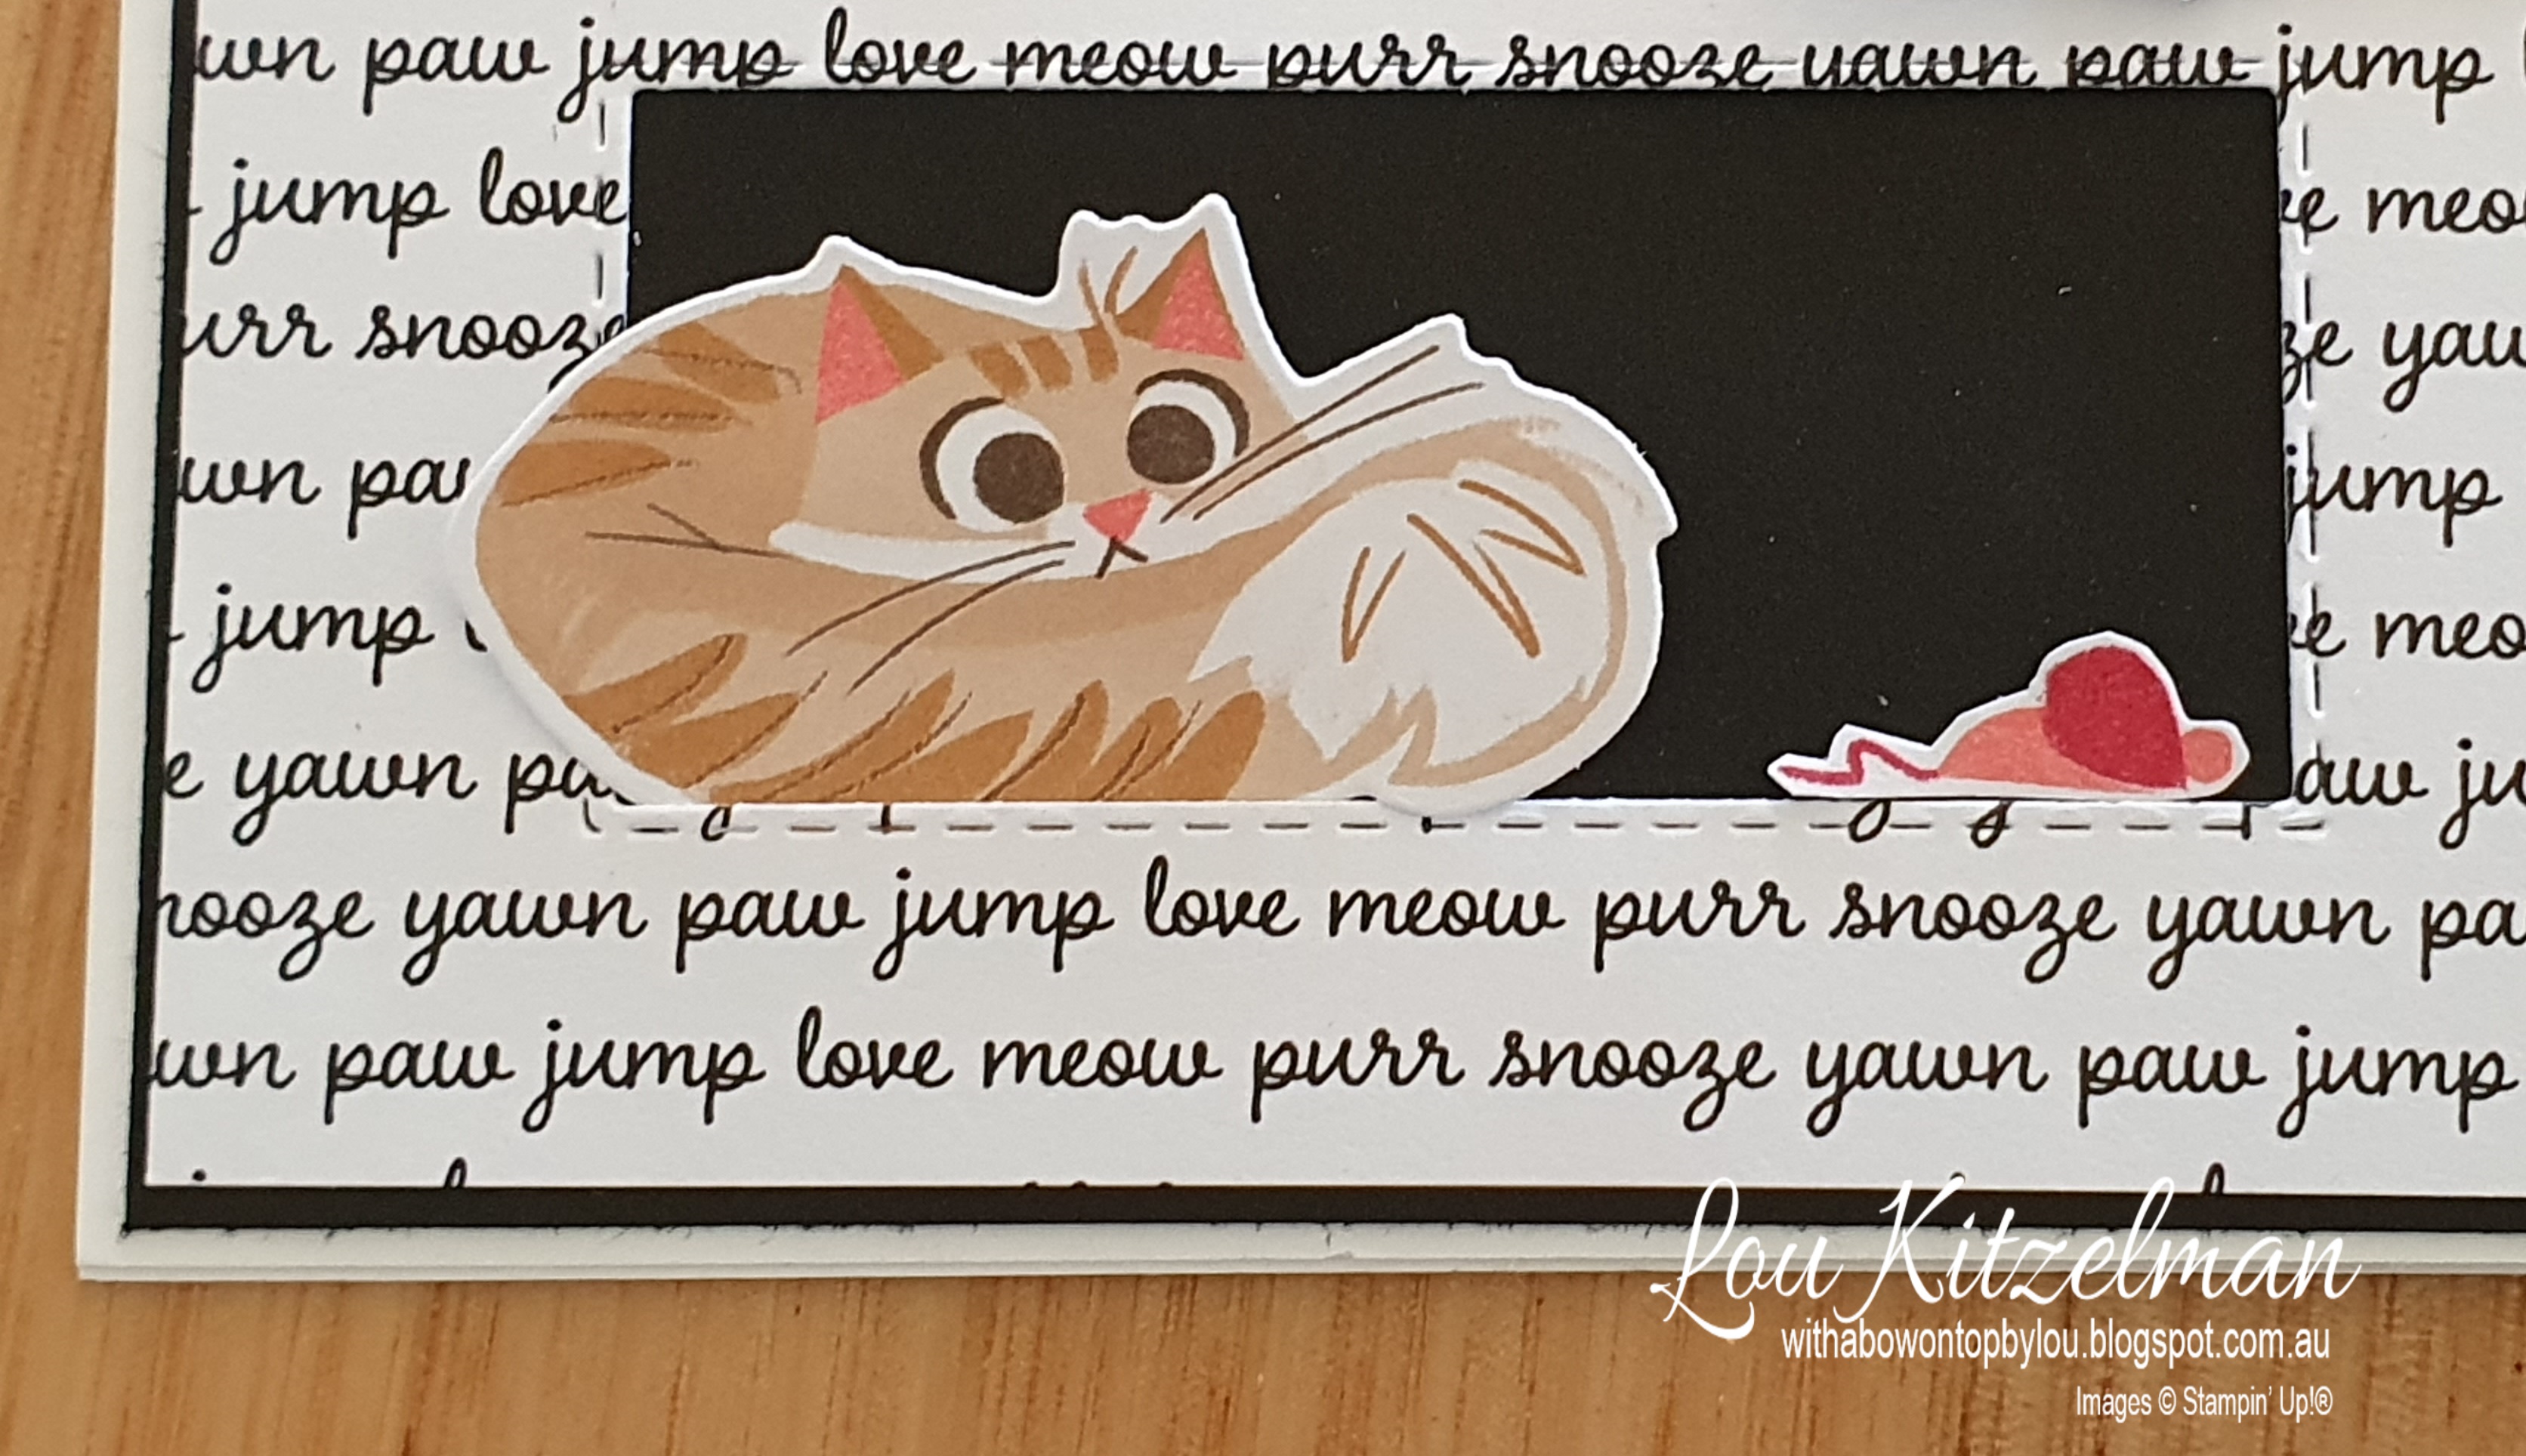 wn paw jump love meow purr snooze yawn paw jump
jump love e meo
urr snooze ze yaw
wn pa jump
jump e meo
e yawn pa aw ju
nooze yawn paw jump love meow purr snooze yawn pa
wn paw jump love meow purr snooze yawn paw jump
Lou Kitzelman
withabowontopbylou.blogspot.com.au
Images © Stampin' Up!®